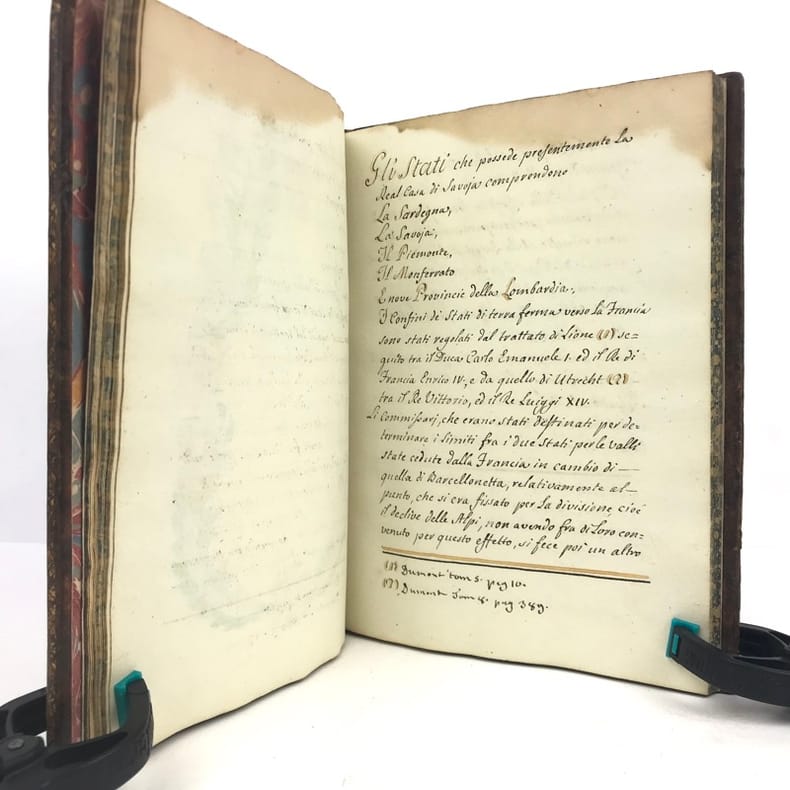 Gli Stati che possede presentemente La
Real Casa di Savoja comprendono
La Sardegna,
La Savoja,
Il Piemonte,
Il Monferrato
E nove Provincie della Lombardia.
I Confini de Stati di terra ferma verso La Francia
sono stati regolati dal trattato di Lione (1) se=
guito tra il Duca Carlo Emanuele I. ed il Re di
Francia Enrico IV., e da quello di Utrecht (2)
tra il Re Vittorio, ed il Re Luiggi XIV.
Li Commissarj, che erano stati destinati per de=
terminare i limiti fra i due Stati per le valli
state cedute dalla Francia in cambio di
quella di Barcellonetta, relativamente al
punto, che si era fissato per la divisione, cioè
il declive delle Alpi, non avendo fra di Loro con=
venuto per questo effetto, si fece poi un altro
(1) Dumont tom 5. pag 10.
(2) Dumont Tom 8. pag 389.